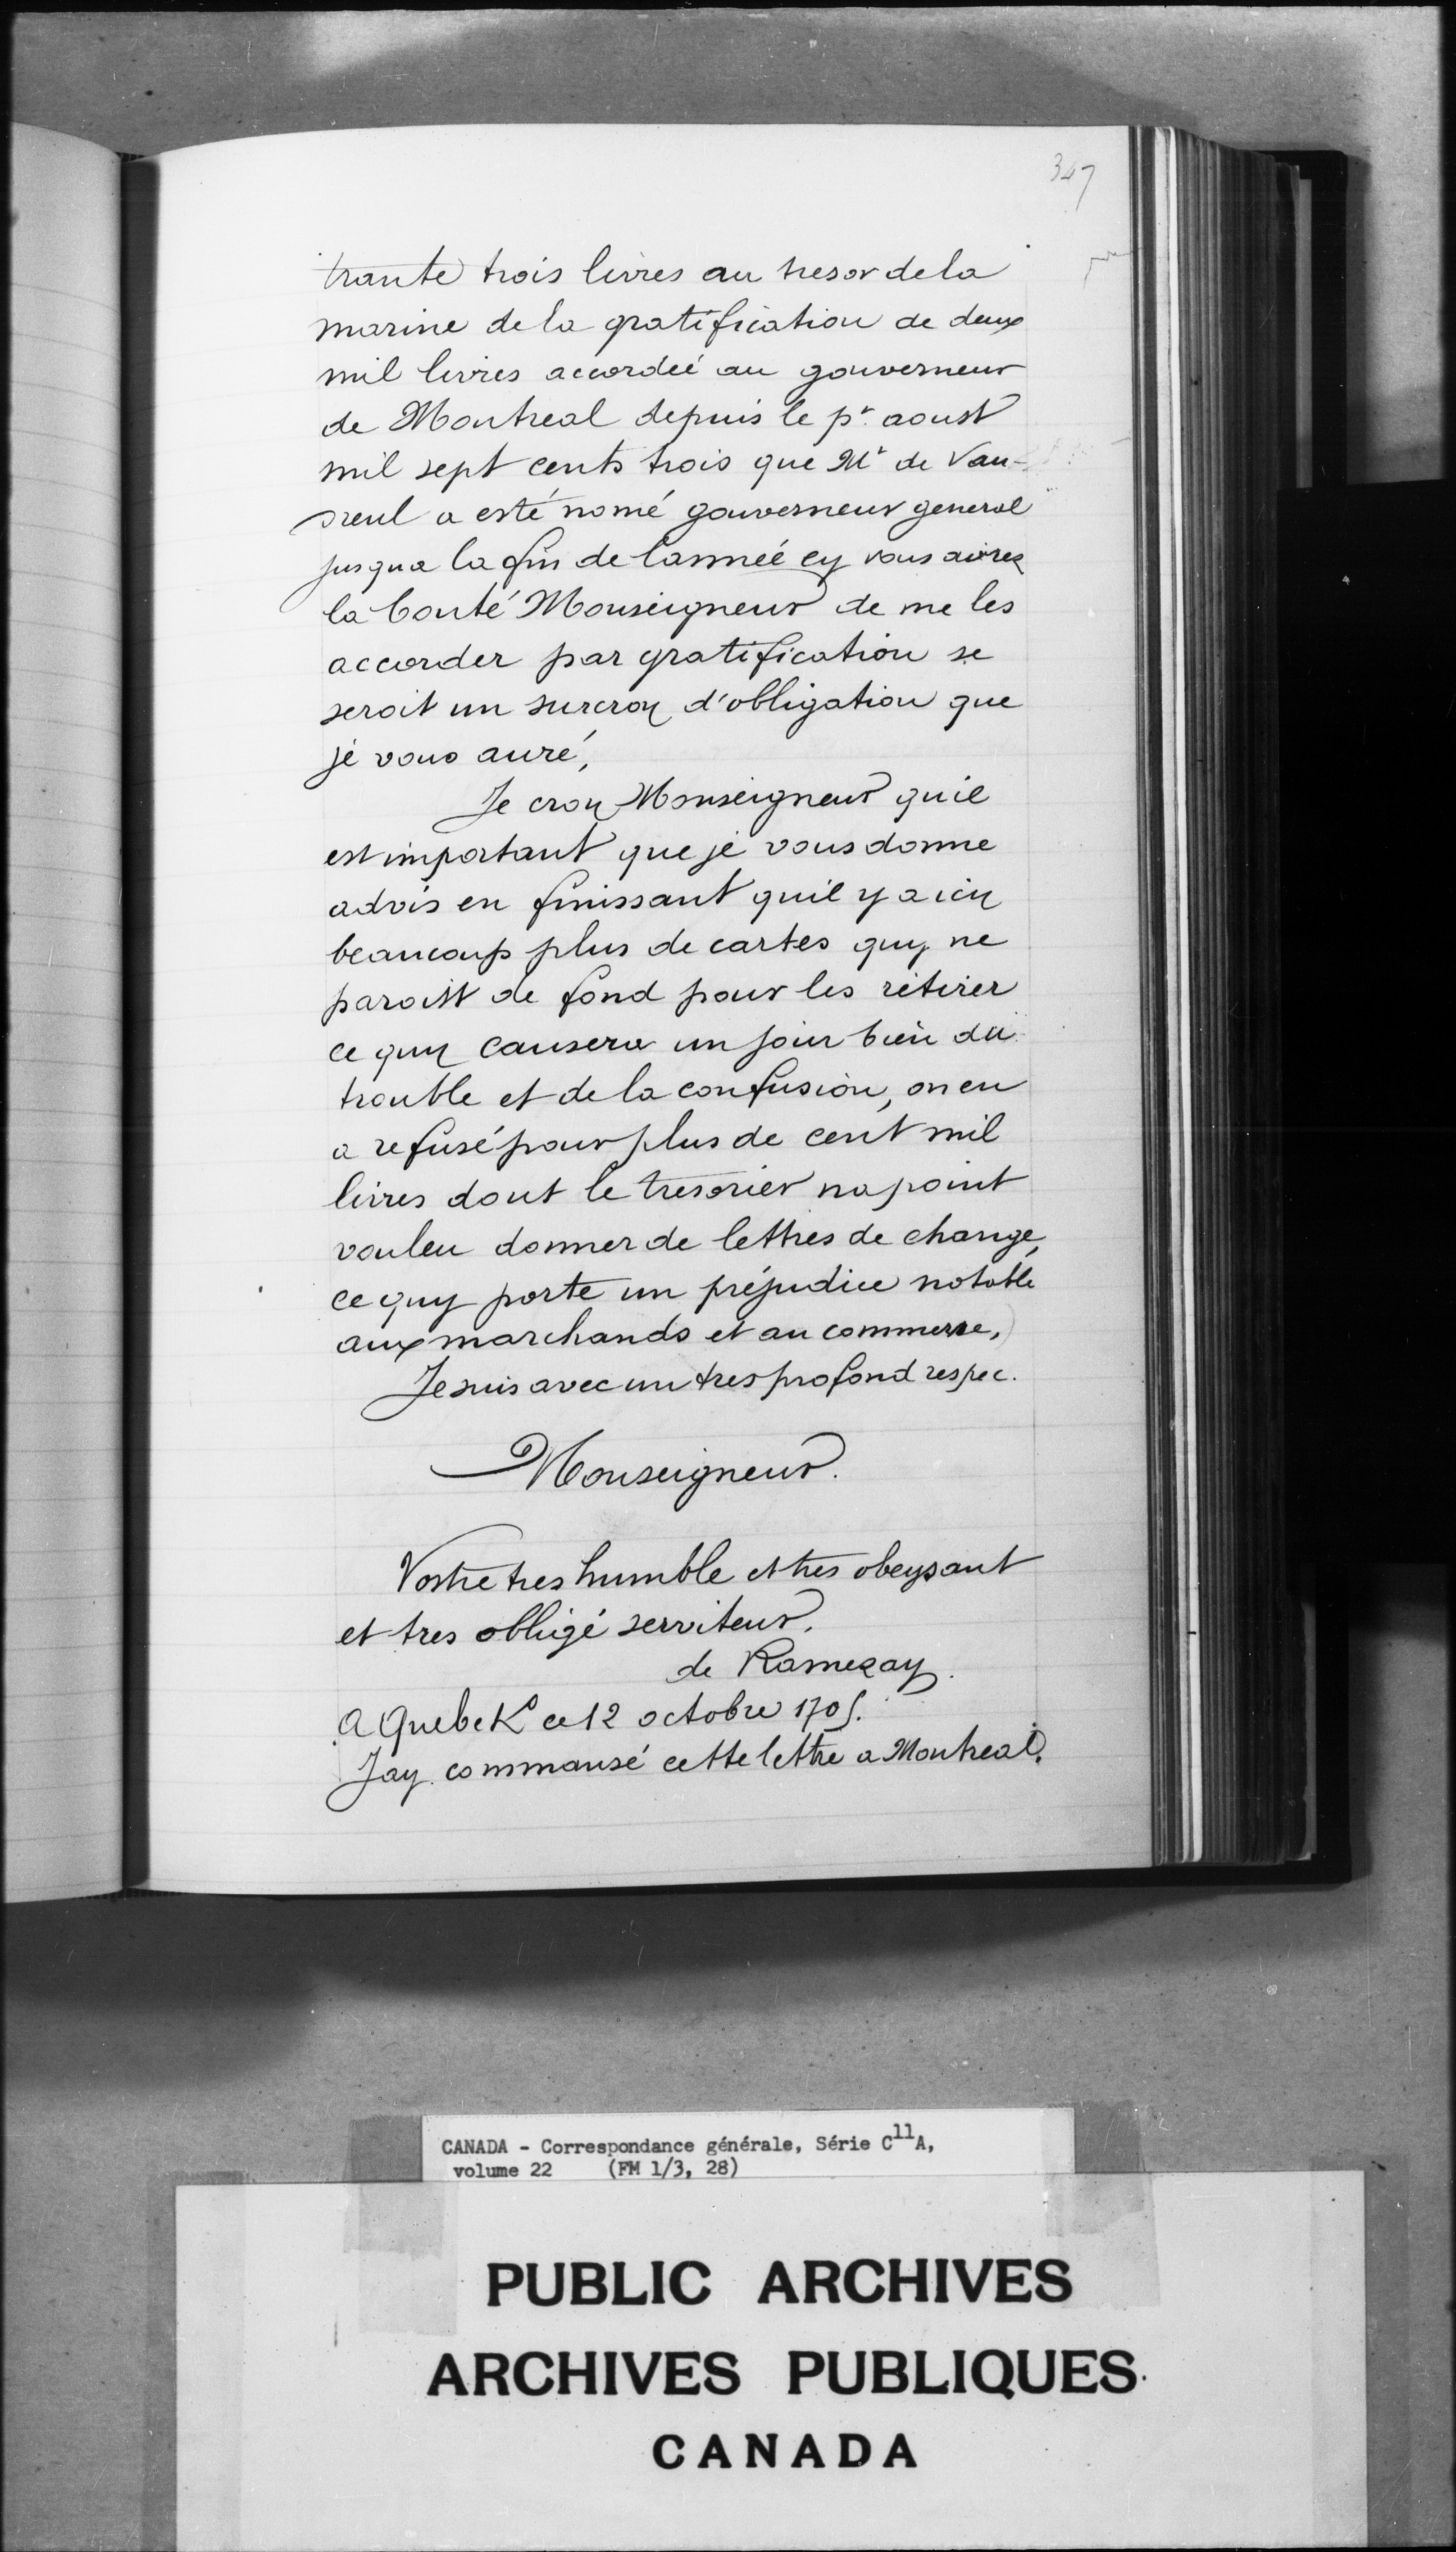 347
trante trois livres au tresor de la
marine de la gratification de deux
mil livres accordéé au gouverneur
de Montreal depuis le pr. aoust
mil sept cents trois que Mr de Vau-
dreul a esté nomé gouverneur general
jusqua la fin de lannéé cy vous aviez
la bonté Monseigneur de me les
accorder par gratification se
seroit un surcroy d'obligation que
je vous auré,
Je croy Monseigneur quil
est important que je vous donne
advis en finissant quil y a icy
beaucoup plus de cartes quy ne
paroist de fond pour les retirer
ce quy causera un jour bien du
trouble et de la confusion, on en
a refusé pour plus de cent mil
livres dont le tresorier na point
vouleu donner de lettres de change,
ce quy porte un préjudice notable
aux marchands et au commerse,
Je suis avec un tres profond respec.
Monseigneur.
Vostre tres humble et tres obeysant
et tres obligé serviteur.
de Ramezay.
A Quebek ce 12 octobre 1705.
Jay commansé cette lettre a Montreal.
CANADA - Correspondance générale, Série C11A,
volume 22 (FM 1/3, 28)
PUBLIC ARCHIVES
ARCHIVES PUBLIQUES
CANADA